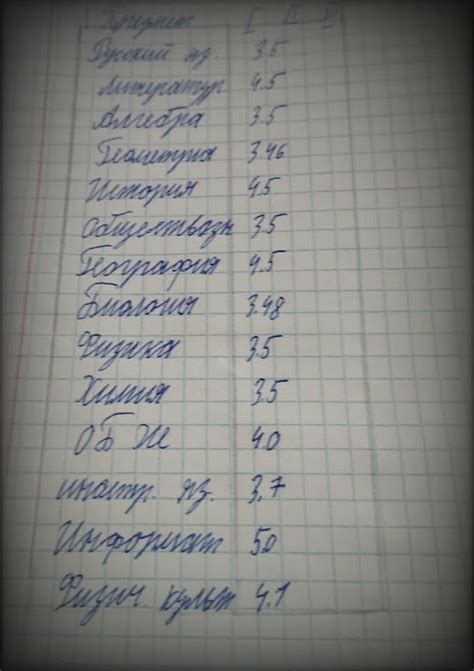 Предмет I II III
Русский яз. 3.5
Литератур. 4.5
Алгебра 3.5
Геометрия 3.46
История 4.5
Обществозн 3.5
География 4.5
Биология 3.48
Физика 3.5
Химия 3.5
ОБЖ 4.0
иностр. яз. 3.7
Информат 5.0
Физич. культ 4.1